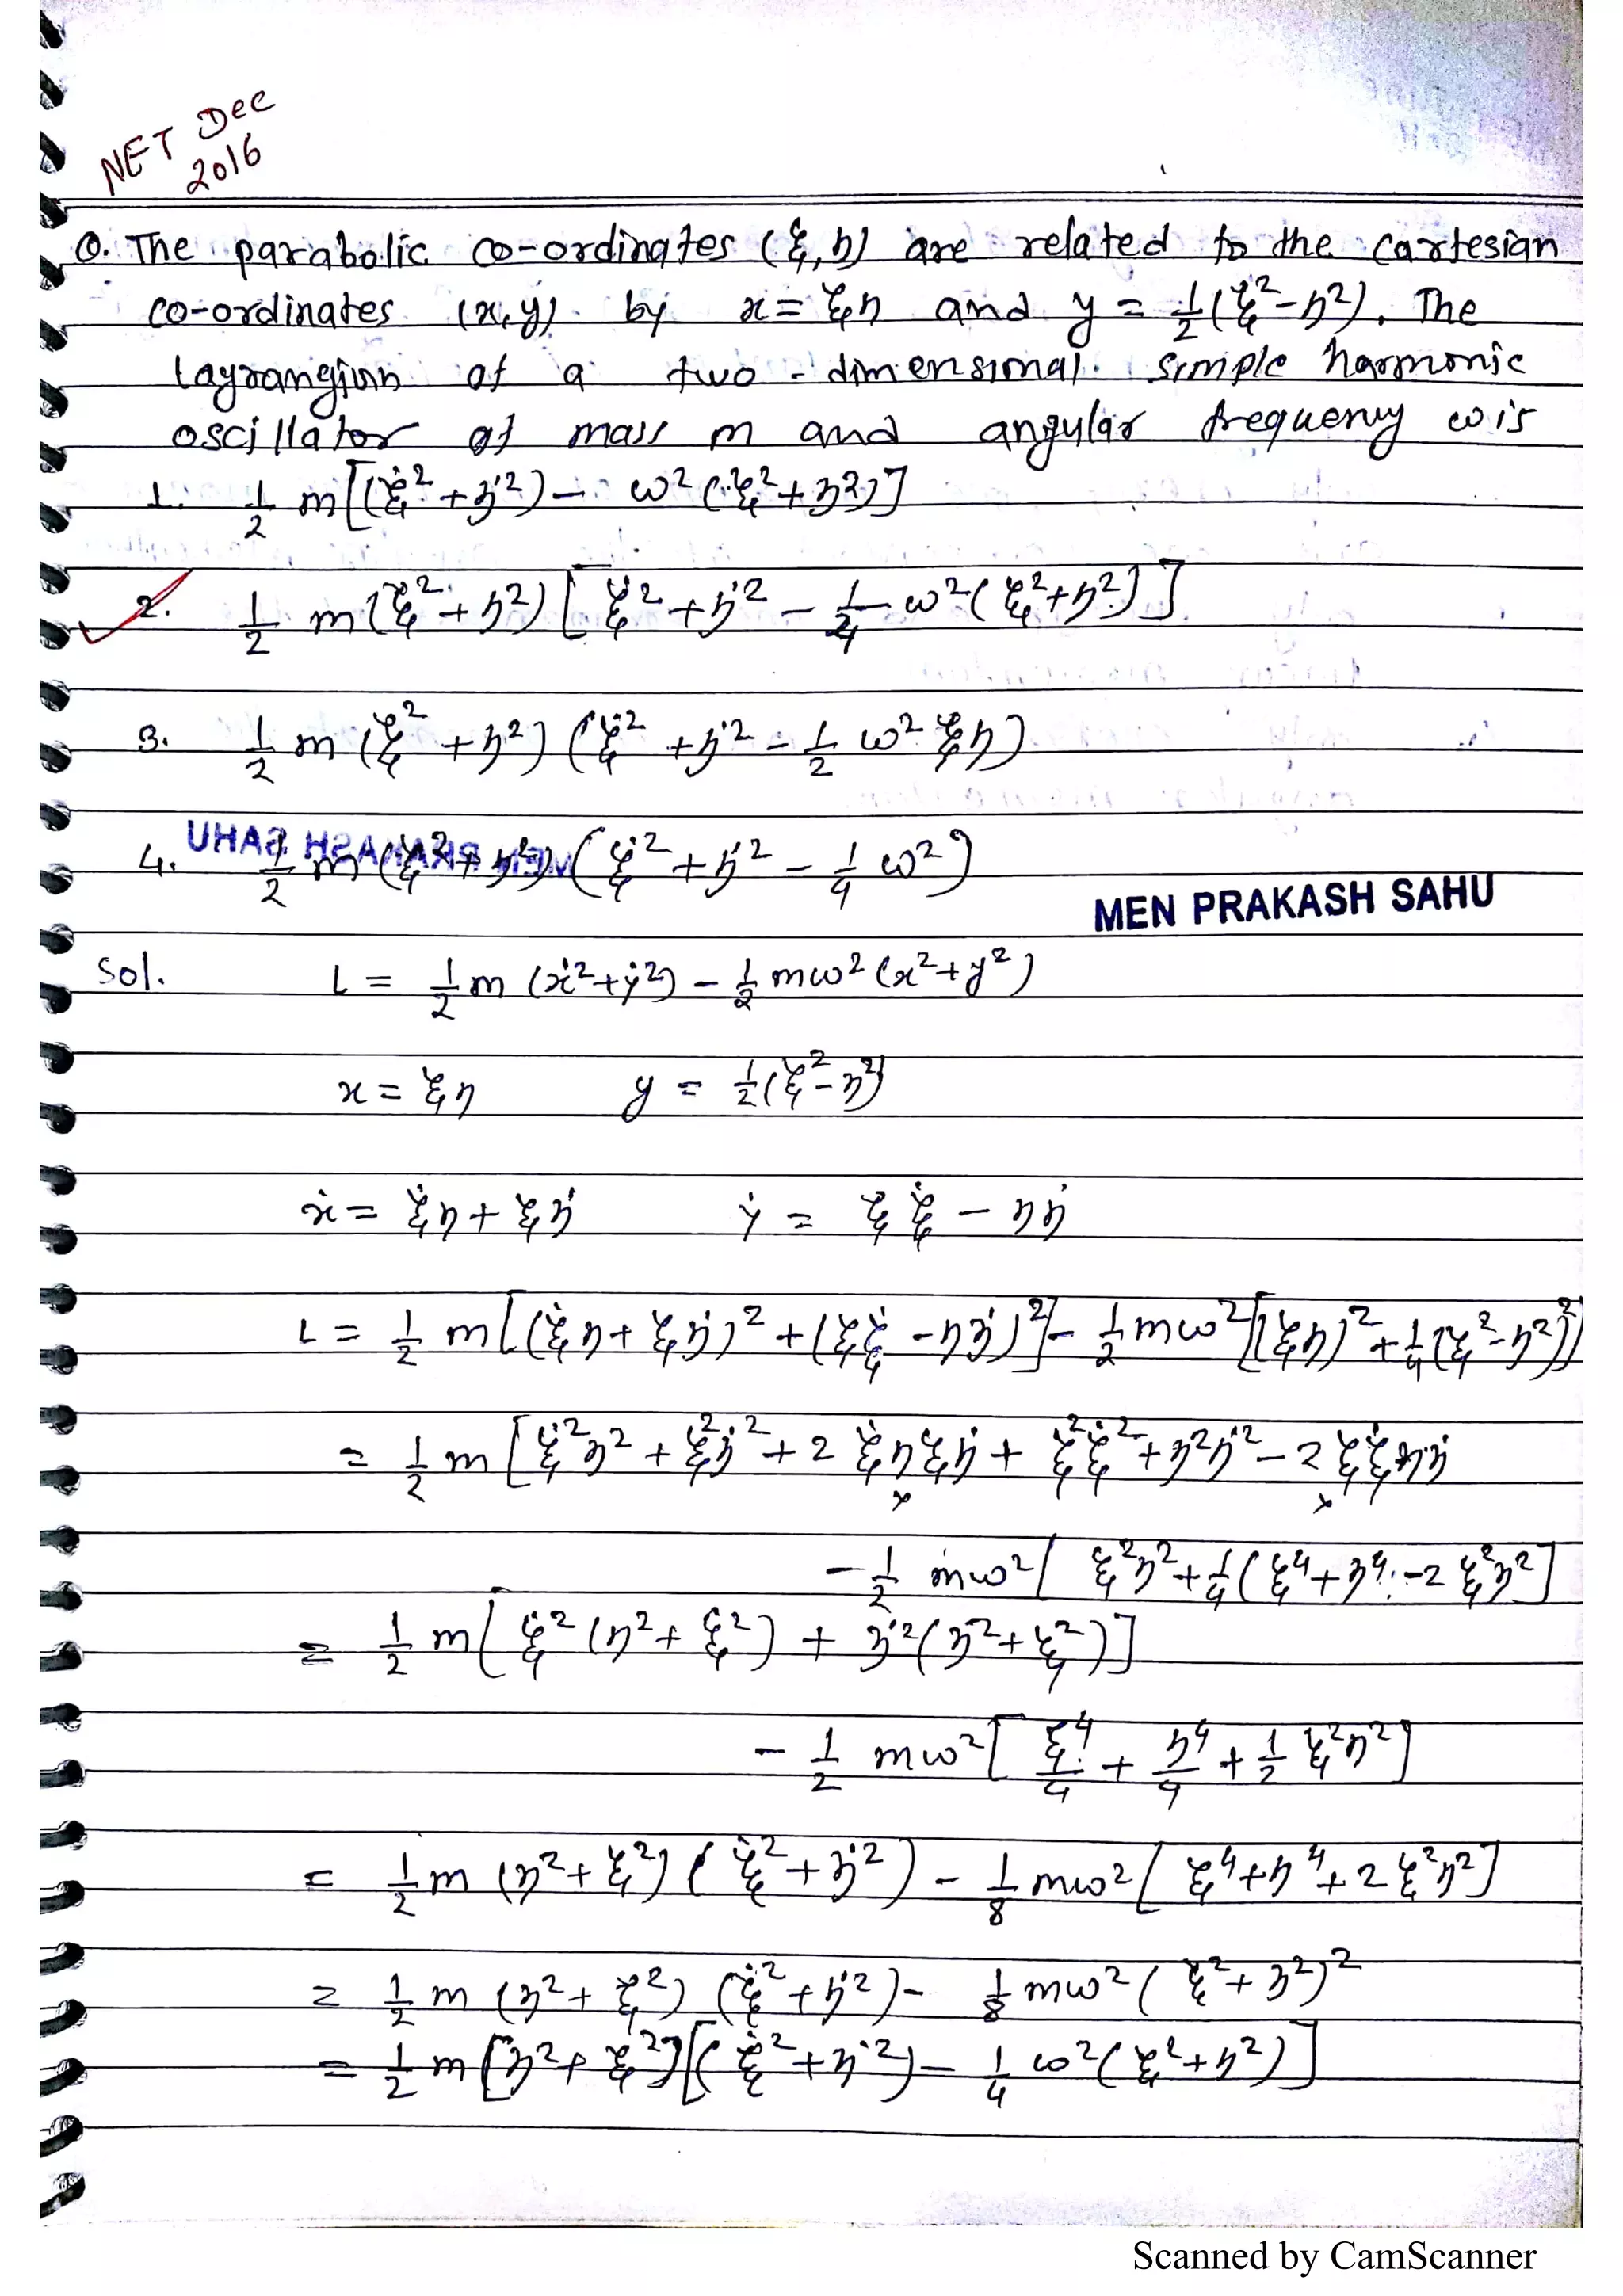 NET Dec
2016
Q. The parabolic co-ordinates (ξ, η) are related to the cartesian
co-ordinates (x, y) by x = ξη and y = 1/2 (ξ² - η²). The
Lagrangian of a two-dimensional simple harmonic
oscillator of mass m and angular frequency ω is
1. 1/2 m[(ξ̇² + η̇²) - ω² (ξ² + η²)]
2. 1/2 m(ξ² + η²) [ξ̇² + η̇² - 1/4 ω² (ξ² + η²)]
3. 1/2 m (ξ² + η²) (ξ̇² + η̇² - 1/2 ω² ξη)
4. 1/2 m (ξ² + η²) (ξ̇² + η̇² - 1/4 ω²)
MEN PRAKASH SAHU
MEN PRAKASH SAHU
Sol. L = 1/2 m (ẋ² + ẏ²) - 1/2 mω² (x² + y²)
x = ξη y = 1/2 (ξ² - η²)
ẋ = ξ̇η + ξη̇ ẏ = ξξ̇ - ηη̇
L = 1/2 m[(ξ̇η + ξη̇)² + (ξξ̇ - ηη̇)²] - 1/2 mω² [(ξη)² + 1/4 (ξ² - η²)²]
= 1/2 m [ξ̇²η² + ξ²η̇² + 2 ξ̇ηξη̇ + ξ²ξ̇² + η²η̇² - 2 ξξ̇ηη̇
x x
- 1/2 mω² [ξ²η² + 1/4 (ξ⁴ + η⁴ - 2 ξ²η²]
= 1/2 m[ξ̇² (η² + ξ²) + η̇² (η² + ξ²)]
- 1/2 mω² [ξ⁴/4 + η⁴/4 + 1/2 ξ²η²]
= 1/2 m (η² + ξ²) (ξ̇² + η̇²) - 1/8 mω² [ξ⁴ + η⁴ + 2 ξ²η²]
= 1/2 m (η² + ξ²) (ξ̇² + η̇²) - 1/8 mω² (ξ² + η²)²
= 1/2 m [η² + ξ²] [(ξ̇² + η̇²) - 1/4 ω² (ξ² + η²)]
Scanned by CamScanner